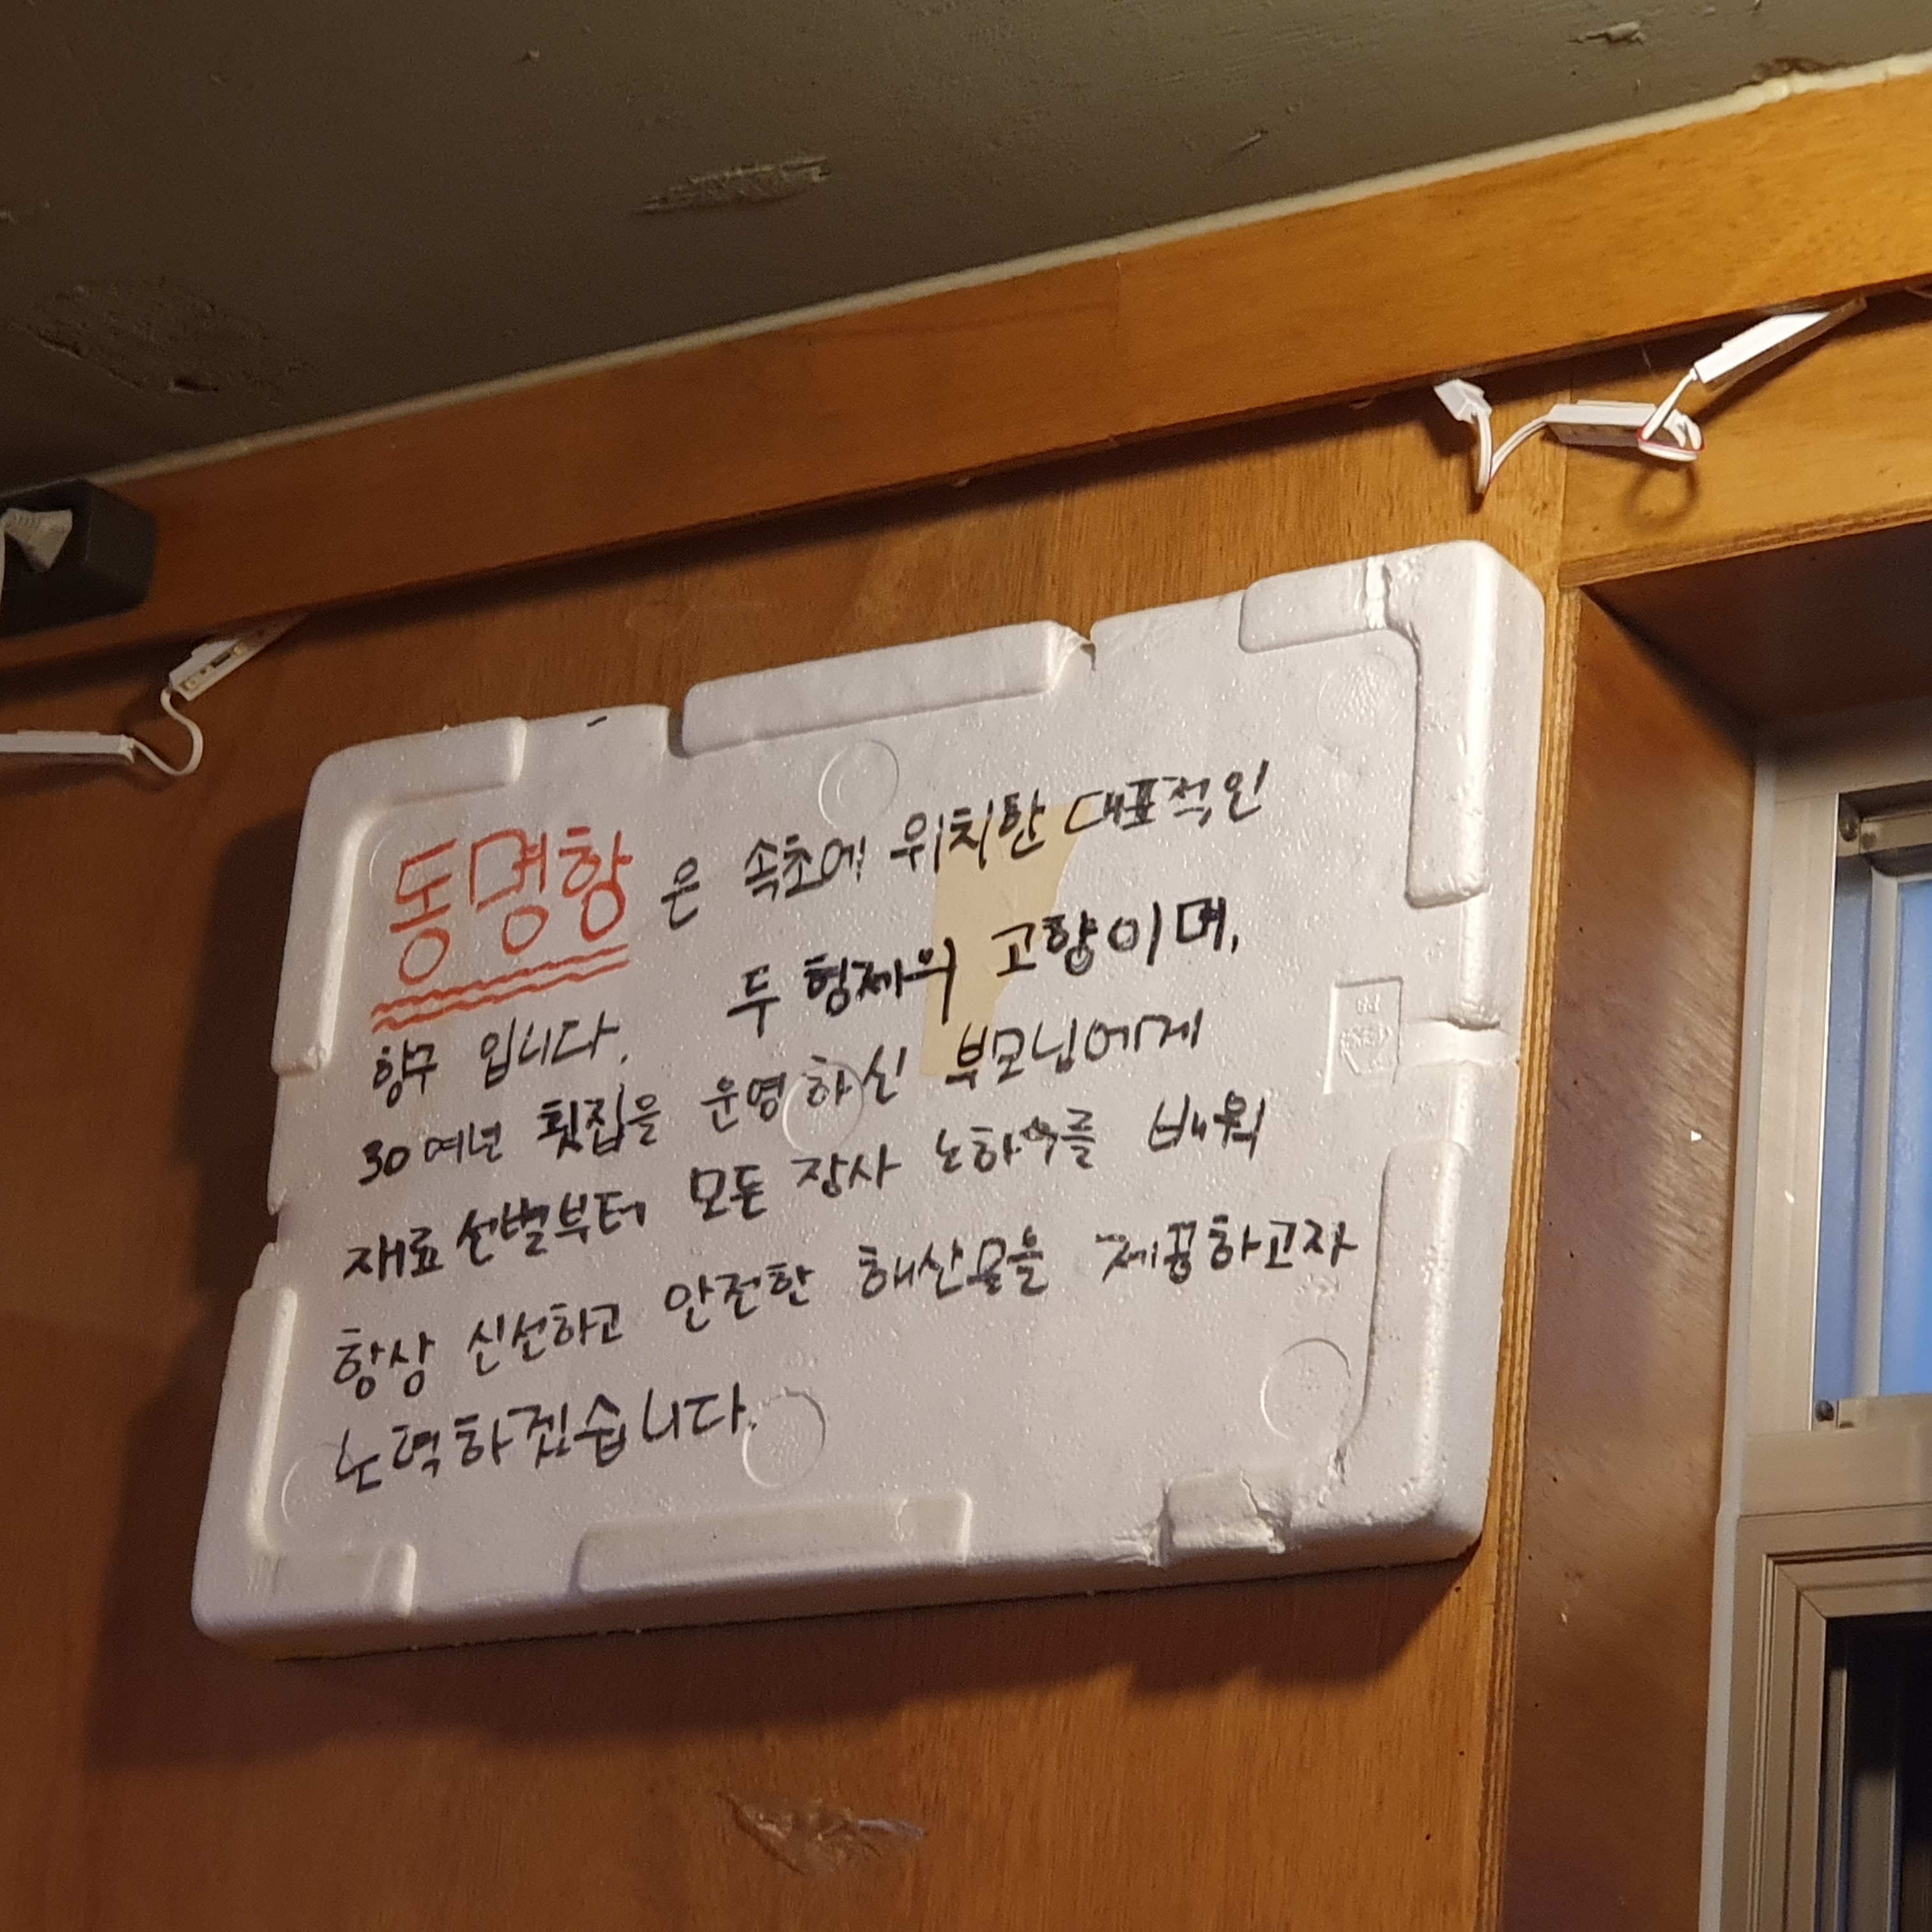 동명항은 속초에 위치한 대표적인
항구 입니다. 두 형제의 고향이며,
30여년 횟집을 운영하신 부모님에게
재료 선별부터 모든 장사 노하우를 배워
항상 신선하고 안전한 해산물을 제공하고자
노력하겠습니다.